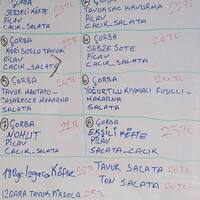 ÇORBA
SEBZELİ KÖFTE
PİLAV
CACIK_SALATA
TAVUK SAC KAVURMA
PİLAV
CACIK_SALATA
3 ÇORBA
KÖRİ SOSLU TAVUK
PİLAV
CACIK_SALATA
4 ÇORBA
SEBZE SOTE
PİLAV
CACIK_SALATA
5 ÇORBA
TAVUK MANTARLI
CASARECCE MAKARNA
SALATA
6 ÇORBA
YOĞURTLU KIYMALI FUSILLI
MAKARNA
SALATA
7 ÇORBA
NOHUT
PİLAV
CACIK_SALATA
8 ÇORBA
EKŞİLİ KÖFTE
PİLAV
SALATA_CACIK
180gr Izgara Köfte
TAVUK SALATA
TON SALATA
IZGARA TAVUK PİRZOLA